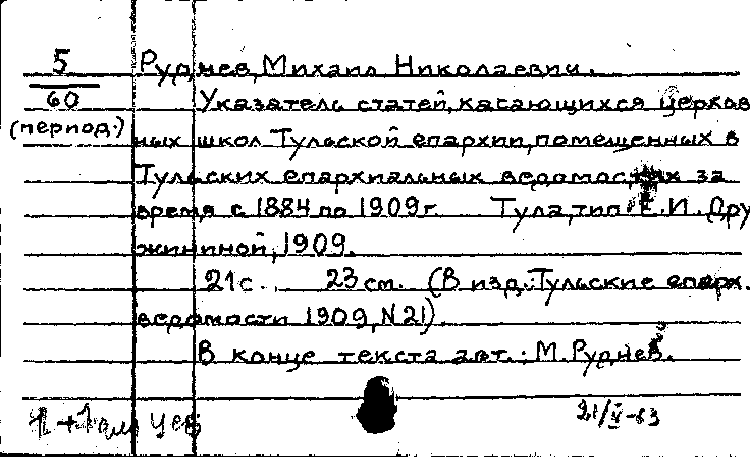 5 Руднев, Михаил Николаевич.
60 Указатель статей, касающихся церков
(период.) ных школ Тульской епархии, помещенных в
Тульских епархиальных ведомостях за
время с 1884 по 1909 г. Тула, тип. Е.И. Дру
жининой, 1909.
21 с. 23 см. (В изд.: Тульские епарх.
ведомости 1909, N 21)
В конце текста авт.: М. Руднев.
21/V-63